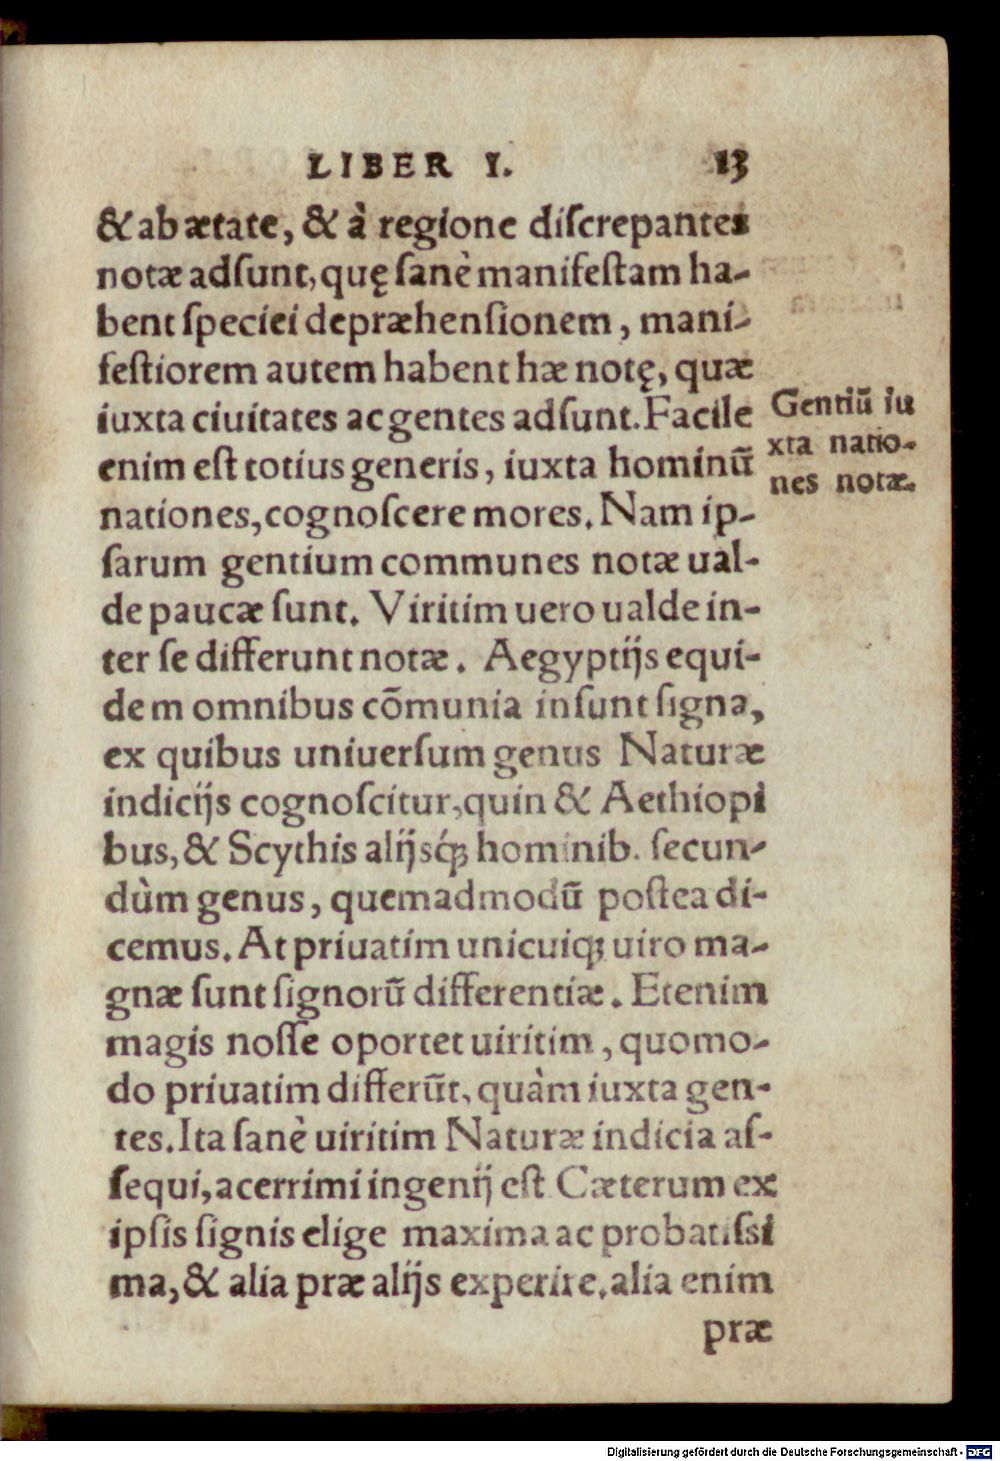 LIBER I. 13
& ab ætate, & à regione discrepantes
notæ adsunt, quę sanè manifestam ha-
bent speciei depræhensionem, mani-
festiorem autem habent hæ notę, quæ
iuxta ciuitates ac gentes adsunt. Facile
enim est totius generis, iuxta hominũ
nationes, cognoscere mores. Nam ip-
sarum gentium communes notæ ual-
de paucæ sunt. Viritim uero ualde in-
ter se differunt notæ. Aegyptijs equi-
dem omnibus cõmunia insunt signa,
ex quibus uniuersum genus Naturæ
indicijs cognoscitur, quin & Aethiopi
bus, & Scythis alijsq́ꝫ hominib. secun-
dùm genus, quemadmodũ postea di-
cemus. At priuatim unicuiqꝫ uiro ma-
gnæ sunt signorũ differentiæ. Etenim
magis nosse oportet uiritim, quomo-
do priuatim differũt, quàm iuxta gen-
tes. Ita sanè uiritim Naturæ indicia as-
sequi, acerrimi ingenij est Cæterum ex
ipsis signis elige maxima ac probatissi
ma, & alia præ alijs experire. alia enim
præ
Gentiũ iu
xta natio-
nes notæ.
Digitalisierung gefördert durch die Deutsche Forschungsgemeinschaft - DFG